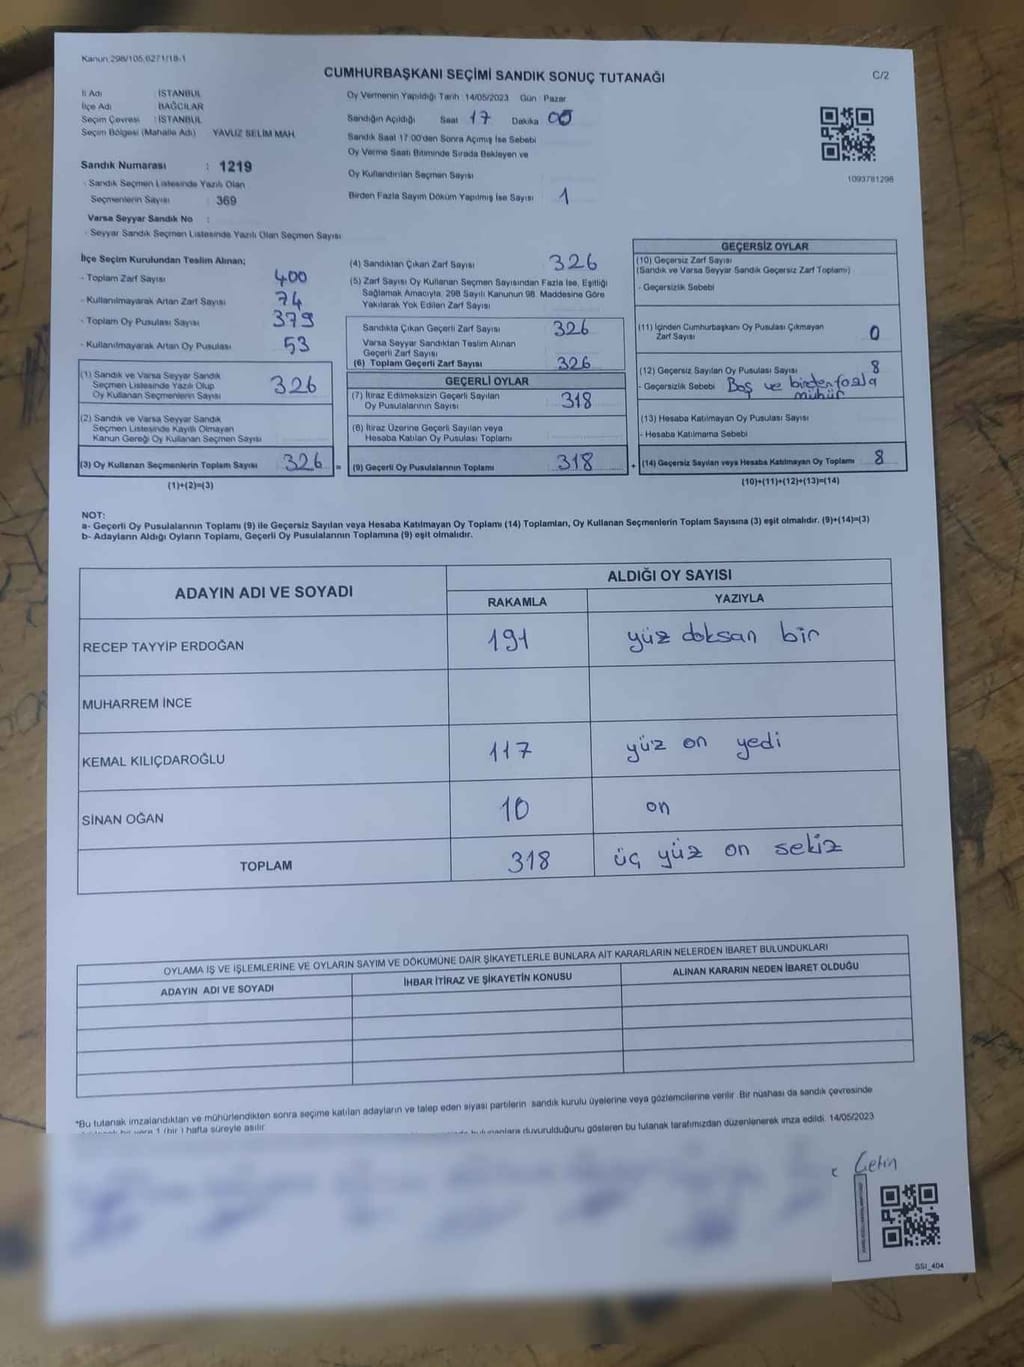 Kanun 298/105,6271/18-1
CUMHURBAŞKANI SEÇİMİ SANDIK SONUÇ TUTANAĞI
C/2
İl Adı : İSTANBUL
İlçe Adı : BAĞCILAR
Seçim Çevresi : İSTANBUL
Seçim Bölgesi (Mahalle Adı) YAVUZ SELİM MAH.
Oy Vermenin Yapıldığı Tarih 14/05/2023 Gün : Pazar
Sandığın Açıldığı Saat 17 Dakika 00
Sandık Saat 17:00'den Sonra Açımış İse Sebebi
Oy Verme Saati Bitiminde Sırada Bekleyen ve
Oy Kullandırılan Seçmen Sayısı
Birden Fazla Sayım Döküm Yapılmış İse Sayısı 1
1093781298
Sandık Numarası : 1219
- Sandık Seçmen Listesinde Yazılı Olan
Seçmenlerin Sayısı : 369
Varsa Seyyar Sandık No :
- Seyyar Sandık Seçmen Listesinde Yazılı Olan Seçmen Sayısı
İlçe Seçim Kurulundan Teslim Alınan;
- Toplam Zarf Sayısı 400
- Kullanılmayarak Artan Zarf Sayısı 74
- Toplam Oy Pusulası Sayısı 379
- Kullanılmayarak Artan Oy Pusulası 53
(1) Sandık ve Varsa Seyyar Sandık
Seçmen Listesinde Yazılı Olup
Oy Kullanan Seçmenlerin Sayısı 326
(2) Sandık ve Varsa Seyyar Sandık
Seçmen Listesinde Kayıtlı Olmayan
Kanun Gereği Oy Kullanan Seçmen Sayısı
(3) Oy Kullanan Seçmenlerin Toplam Sayısı 326 =
(1)+(2)=(3)
(4) Sandıktan Çıkan Zarf Sayısı 326
(5) Zarf Sayısı Oy Kullanan Seçmen Sayısından Fazla İse, Eşitliği
Sağlamak Amacıyla, 298 Sayılı Kanunun 98. Maddesine Göre
Yakılarak Yok Edilen Zarf Sayısı
Sandıkta Çıkan Geçerli Zarf Sayısı 326
Varsa Seyyar Sandıktan Teslim Alınan
Geçerli Zarf Sayısı
(6) Toplam Geçerli Zarf Sayısı 326
GEÇERLİ OYLAR
(7) İtiraz Edilmeksizin Geçerli Sayılan
Oy Pusulalarının Sayısı 318
(8) İtiraz Üzerine Geçerli Sayılan veya
Hesaba Katılan Oy Pusulası Toplamı
(9) Geçerli Oy Pusulalarının Toplamı 318 +
GEÇERSİZ OYLAR
(10) Geçersiz Zarf Sayısı
(Sandık ve Varsa Seyyar Sandık Geçersiz Zarf Toplamı)
- Geçersizlik Sebebi
(11) İçinden Cumhurbaşkanı Oy Pusulası Çıkmayan
Zarf Sayısı 0
(12) Geçersiz Sayılan Oy Pusulası Sayısı 8
- Geçersizlik Sebebi Boş ve birden fazla
mühür
(13) Hesaba Katılmayan Oy Pusulası Sayısı
- Hesaba Katılmama Sebebi
(14) Geçersiz Sayılan veya Hesaba Katılmayan Oy Toplamı 8
(10)+(11)+(12)+(13)=(14)
NOT:
a- Geçerli Oy Pusulalarının Toplamı (9) ile Geçersiz Sayılan veya Hesaba Katılmayan Oy Toplamı (14) Toplamları, Oy Kullanan Seçmenlerin Toplam Sayısına (3) eşit olmalıdır. (9)+(14)=(3)
b- Adayların Aldığı Oyların Toplamı, Geçerli Oy Pusulalarının Toplamına (9) eşit olmalıdır.
ADAYIN ADI VE SOYADI
ALDIĞI OY SAYISI
RAKAMLA YAZIYLA
RECEP TAYYİP ERDOĞAN 191 yüz doksan bir
MUHARREM İNCE
KEMAL KILIÇDAROĞLU 117 yüz on yedi
SİNAN OĞAN 10 on
TOPLAM 318 üç yüz on sekiz
OYLAMA İŞ VE İŞLEMLERİNE VE OYLARIN SAYIM VE DÖKÜMÜNE DAİR ŞİKAYETLERLE BUNLARA AİT KARARLARIN NELERDEN İBARET BULUNDUKLARI
ADAYIN ADI VE SOYADI İHBAR İTİRAZ VE ŞİKAYETİN KONUSU ALINAN KARARIN NEDEN İBARET OLDUĞU
*Bu tutanak imzalandıktan ve mühürlendikten sonra seçime katılan adayların ve talep eden siyasi partilerin sandık kurulu üyelerine veya gözlemcilerine verilir. Bir nüshası da sandık çevresinde
1 (bir) hafta süreyle asılır. duyurulduğunu gösteren bu tutanak tarafımızdan düzenlenerek imza edildi. 14/05/2023
Çetin
SSI_404